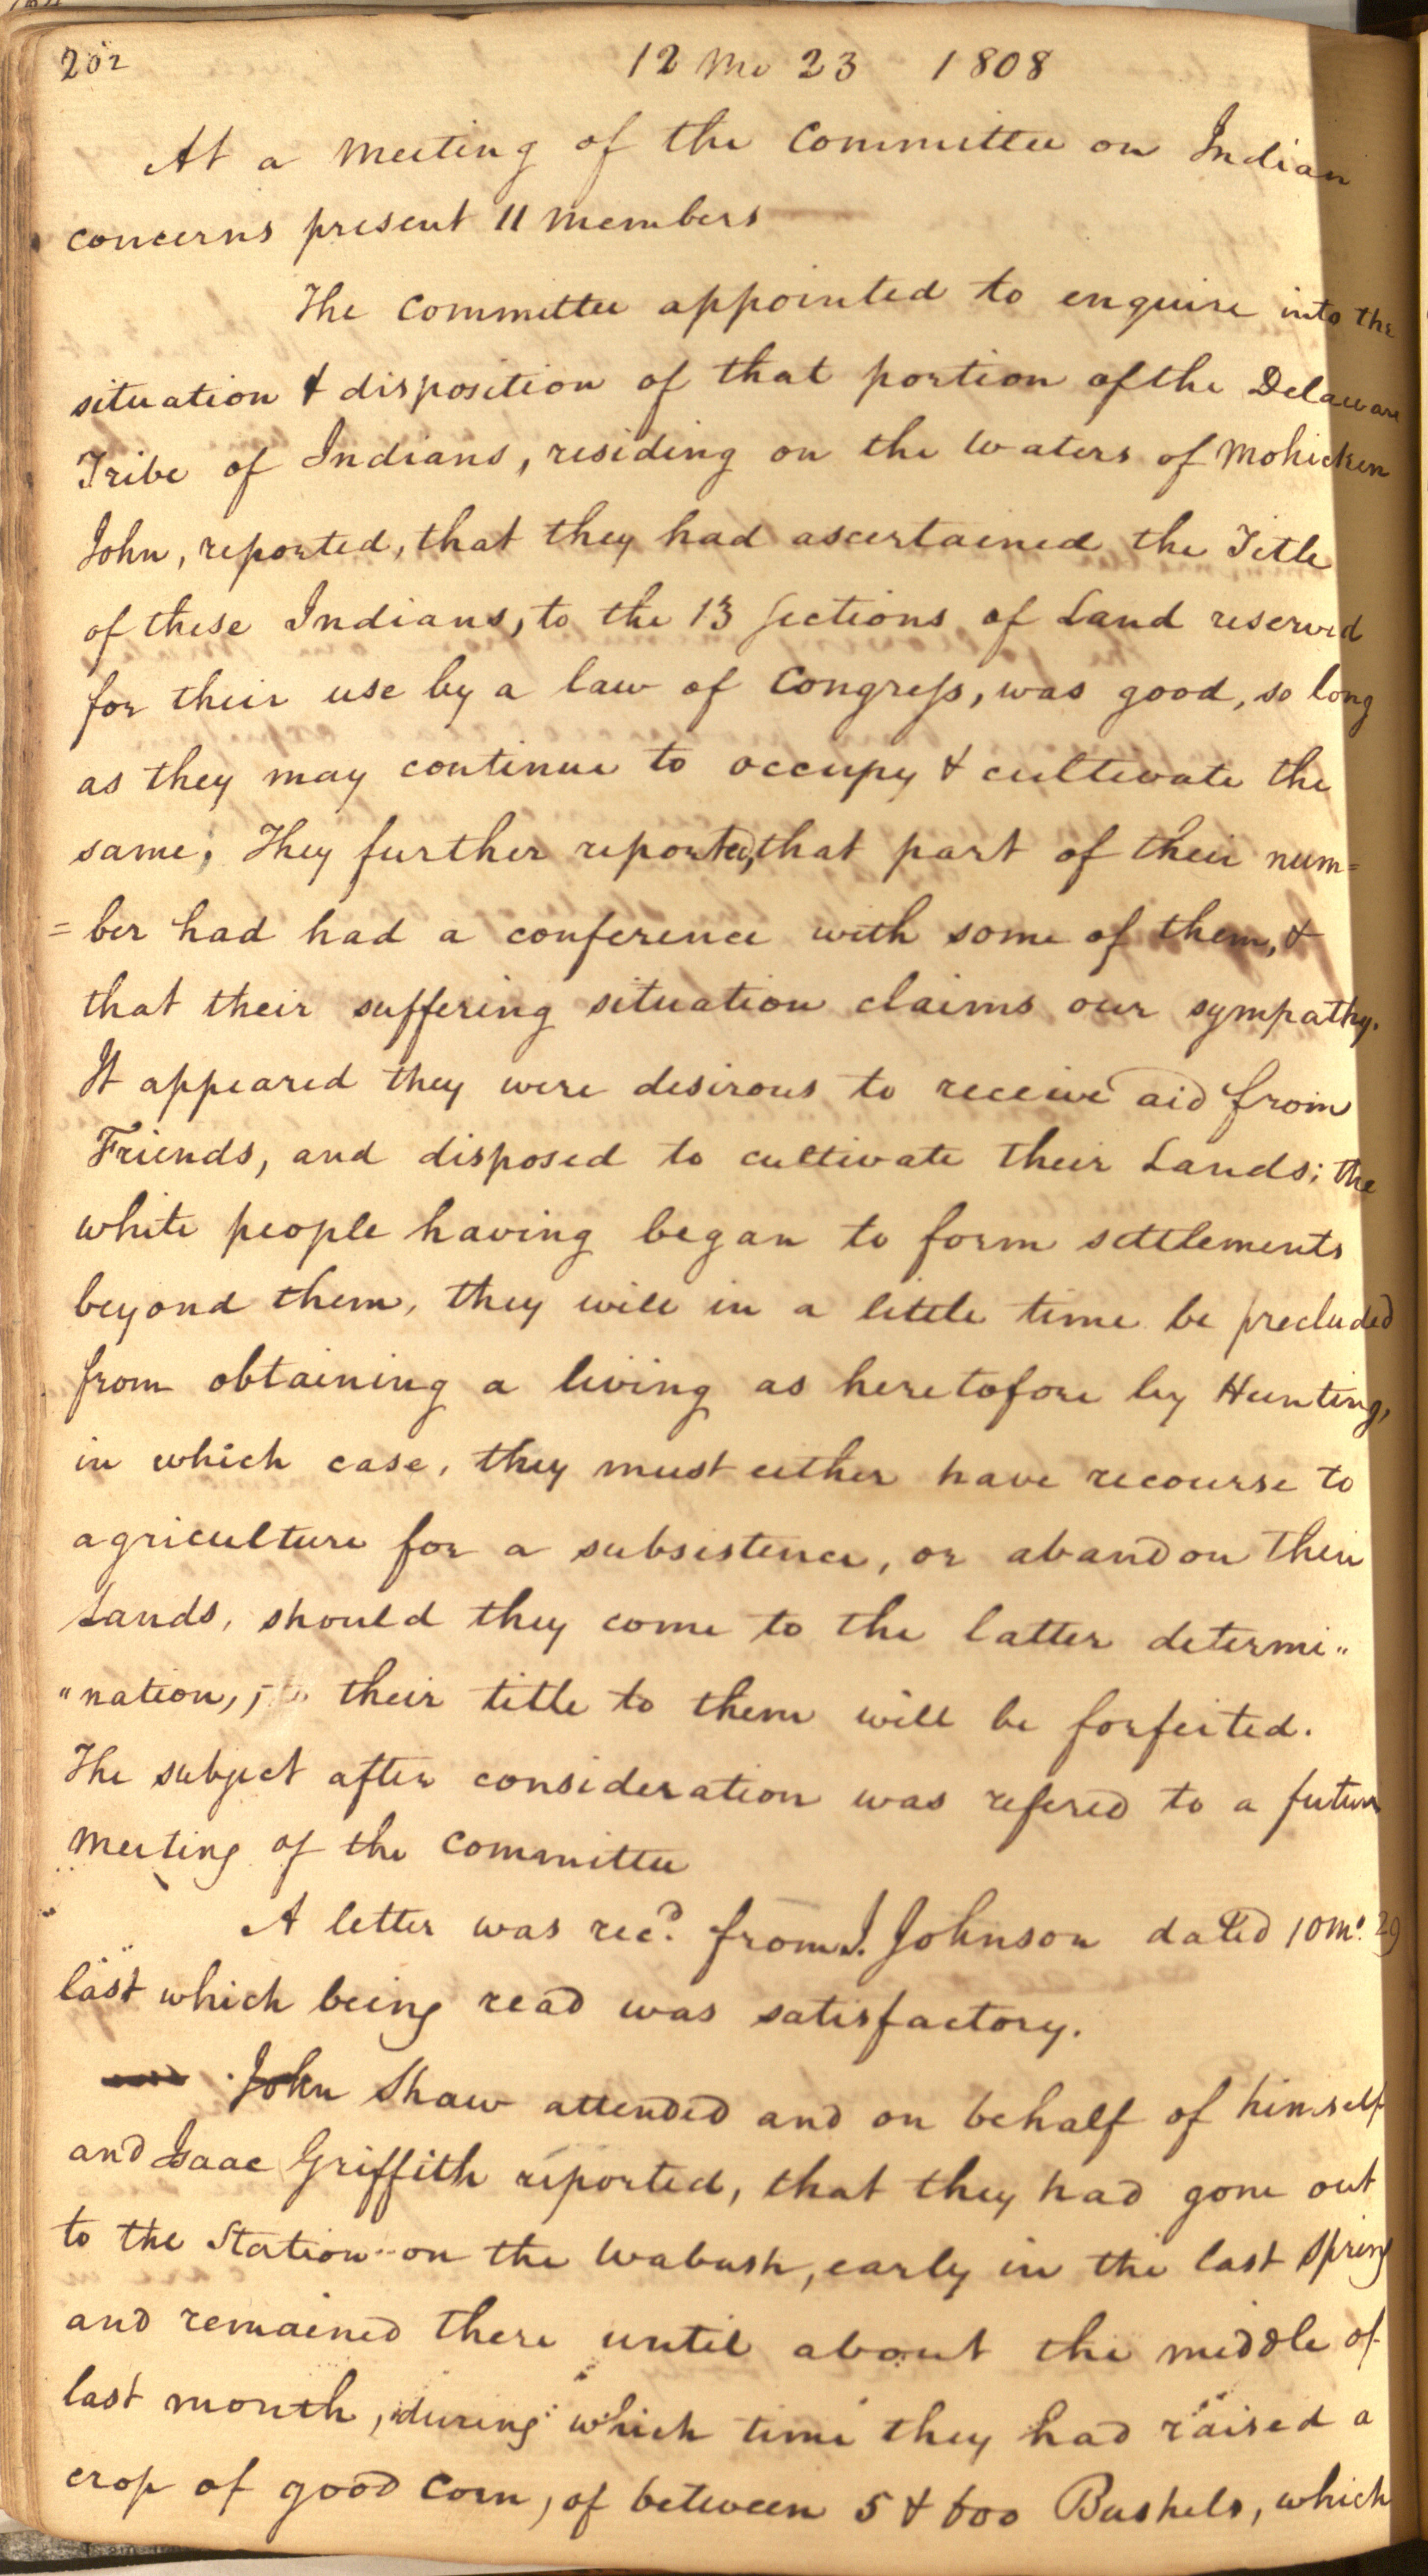 202
12 Mo 23 1808
At a meeting of the Committee on Indian
concerns present 11 members
The Committee appointed to enquire into the
situation & disposition of that portion of the Delaware
Tribe of Indians, residing on the Waters of Mohicken
John, reported, that they had ascertained the Title
of these Indians, to the 13 Sections of Land reserved
for their use by a law of Congress, was good, so long
as they may continue to occupy & cultivate the
same; They further reported, that part of their num=
=ber had had a conference with some of them, &
that their suffering situation claims our sympathy.
It appeared they were desirous to receive aid from
Friends, and disposed to cultivate their Lands; the
white people having began to form settlements
beyond them, they will in a little time be precluded
from obtaining a living as heretofore by Hunting,
in which case, they must either have recourse to
agriculture for a subsistence, or abandon their
Lands, should they come to the latter determi"
"nation, their title to them will be forfeited.
The subject after consideration was refered to a future
meeting of the Committee
A letter was recd. from J. Johnson dated 10 mo. 29
last which being read was satisfactory.
John Shaw attended and on behalf of himself
and Isaac Griffith reported, that they had gone out
to the Station on the Wabash, early in the last Spring
and remained there until about the middle of
last month, during which time they had raised a
crop of good Corn, of between 5 & 600 Bushels, which